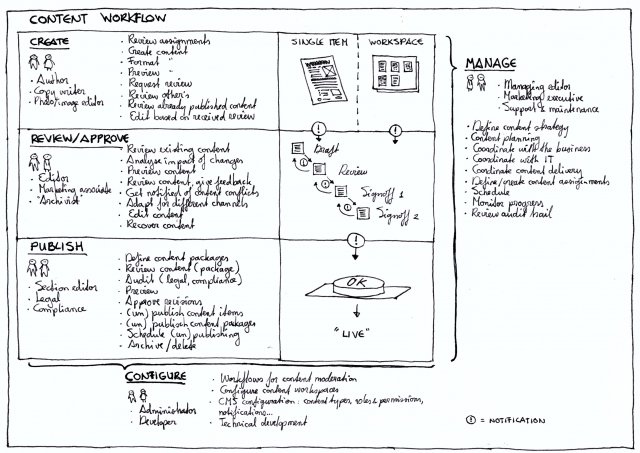 CONTENT WORKFLOW
CREATE
· Author
· Copy writer
· Photo/image editor
· Review assignments
· Create content
· Format "
· Preview "
· Request review
· Review other's
· Review already published content
· Edit based on received review
SINGLE ITEM
WORKSPACE
REVIEW/APPROVE
· Editor
· Marketing associate
· "Archivist"
· Review existing content
· Analyse impact of changes
· Preview content
· Review content, give feedback
· Get notified of content conflicts
· Adapt for different channels
· Edit content
· Recover content
Draft
Review
Signoff 1
Signoff 2
PUBLISH
· Section editor
· Legal
· Compliance
· Define content packages
· Review content (package)
· Audit (legal, compliance)
· Preview
· Approve revisions
· (un) publish content items
· (un) publish content packages
· Schedule (un) publishing
· Archive/delete
OK
"LIVE"
MANAGE
· Managing editor
· Marketing executive
· Support & maintenance
· Define content strategy
· Content planning
· Coordinate with the business
· Coordinate with IT
· Coordinate content delivery
· Define/create content assignments
· Schedule
· Monitor progress
· Review audit trail
CONFIGURE
· Administrator
· Developer
· Workflows for content moderation
· Configure content workspaces
· CMS configuration: content types, roles & permissions,
notifications...
· Technical development
! = NOTIFICATION